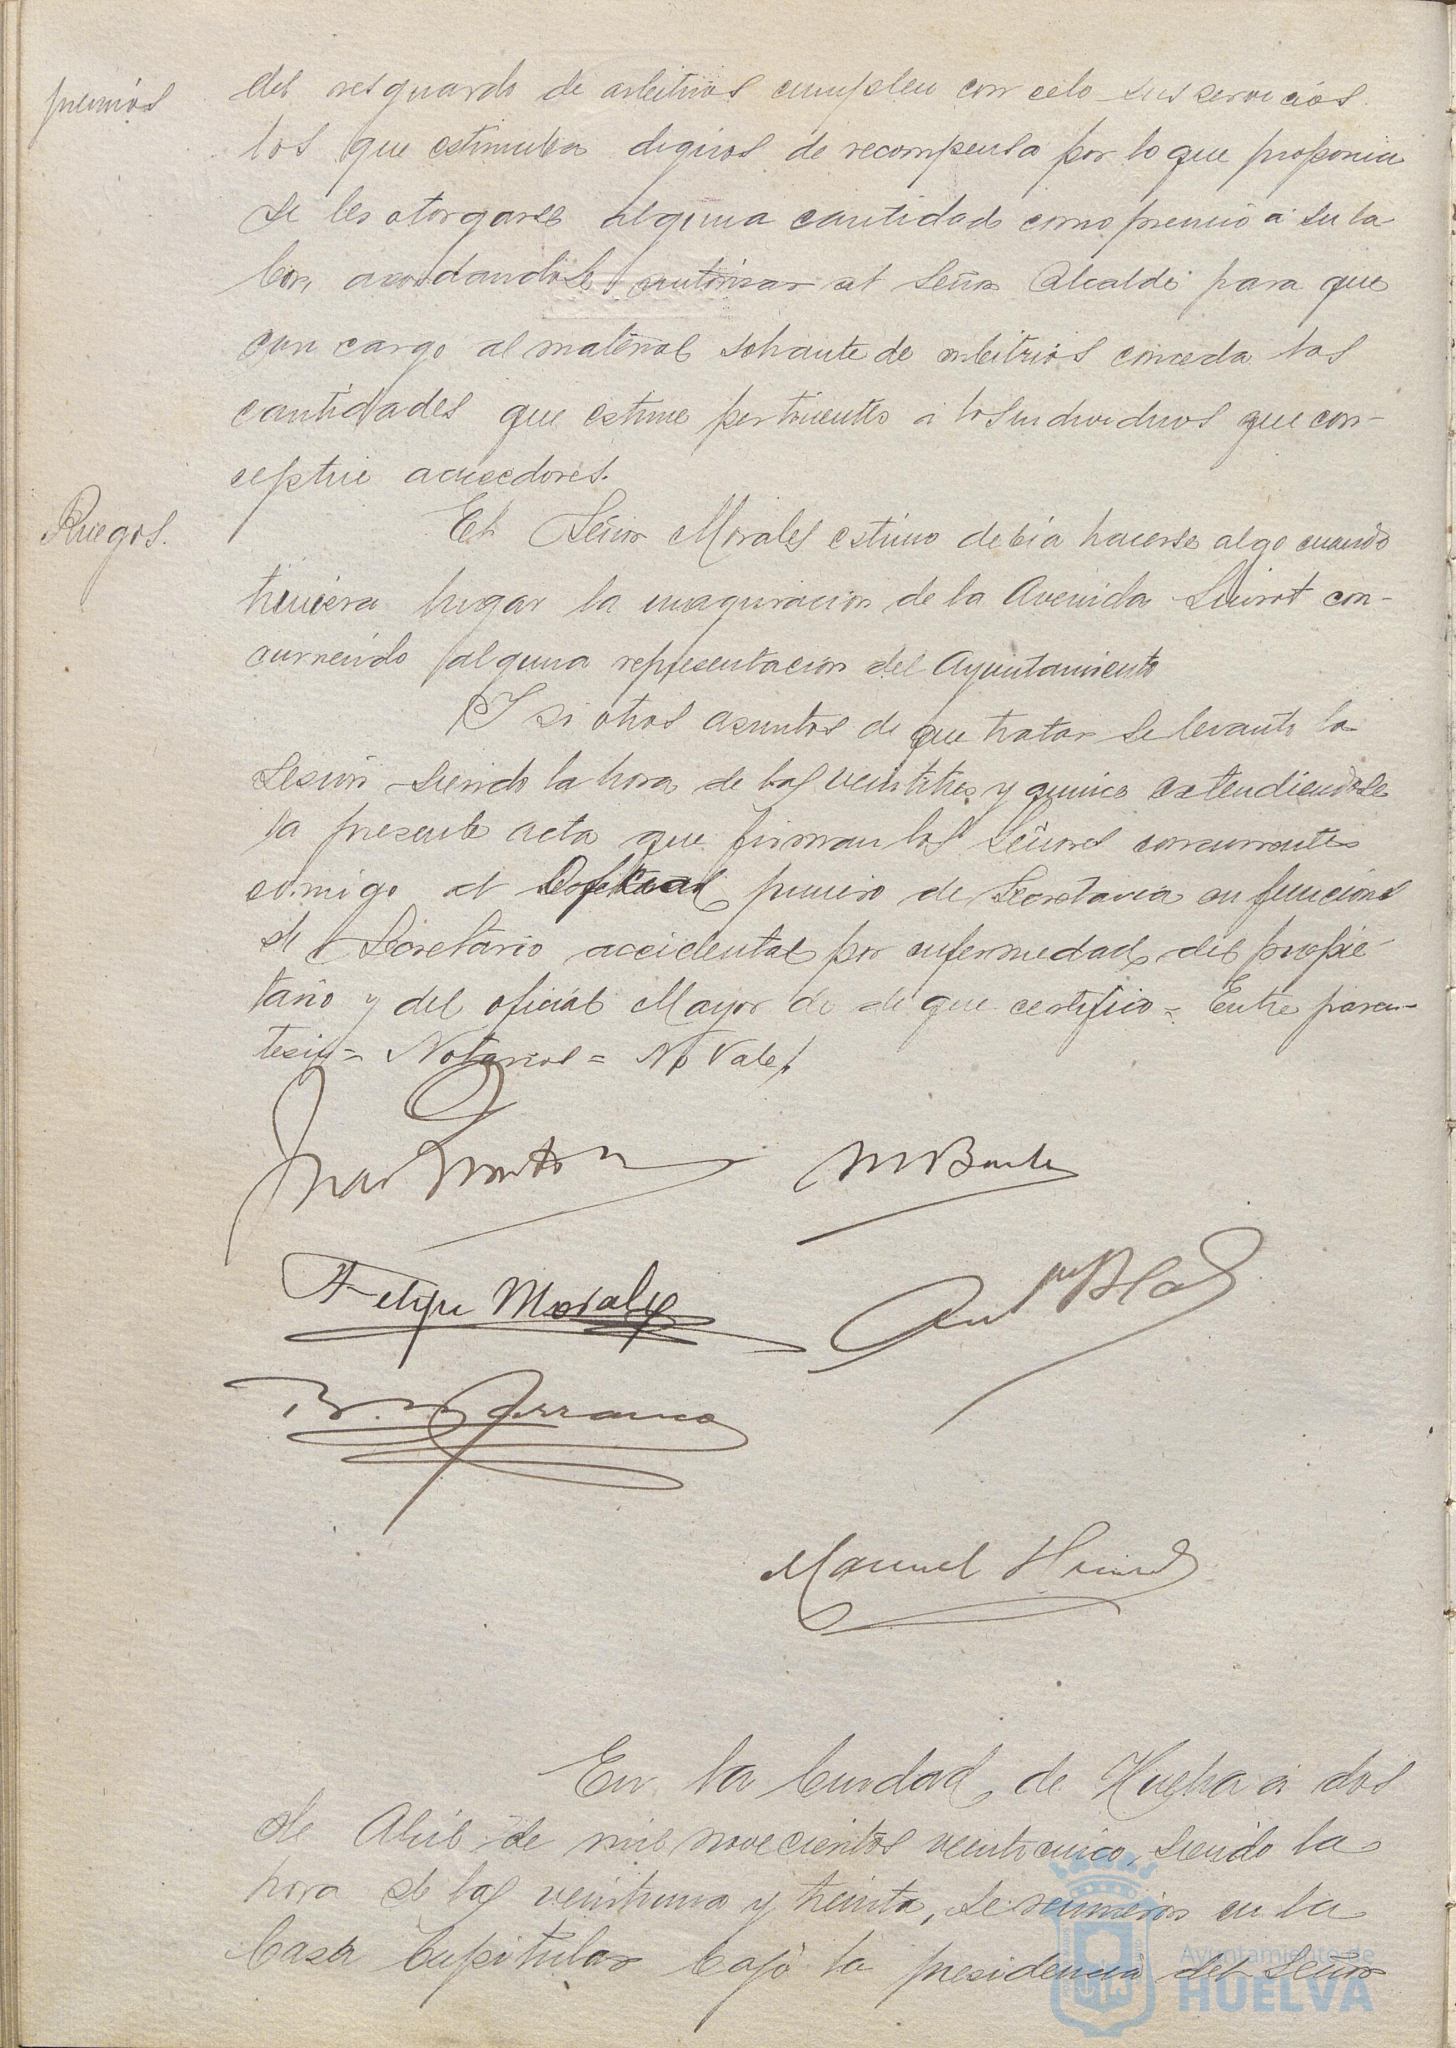 premios
del resguardo de arbitrios cumplen con celo sus servicios
los que estimaba dignos de recompensa por lo que proponia
se les otorgase alguna cantidad como premio á su la
bor, acordandose autorizar al Señor Alcalde para que
con cargo al material sobrante de arbitrios conceda las
cantidades que estime pertinentes á los individuos que con-
ceptue acreedores.
Ruegos.
El Señor Morales estimo debia hacerse algo cuando
tuviera lugar la inaguracion de la Avenida con-
curriendo alguna representacion del Ayuntamiento
Y si otros asuntos de que tratar se levantó la
Sesión siendo la hora de las veintitres y quince extendiendose
la presente acta que firman los Señores concurrentes
comigo el Oficial primero de Secretaria en funcions
de Secretario accidental por enfermedad del propie-
tario y del oficial Mayor de de que certifico = Entre paren-
tesis = Notarios = No Vale/
M Barba
Felipe Morales
Antº Blas
Manuel
En la Ciudad de Huelva á dos
de Abril de mil novecientos veinticinco, siendo la
hora de las veintiuna y treinta, se reunieron en la
Casa Capitular bajo la presidencia del Señor
Ayuntamiento de
HUELVA